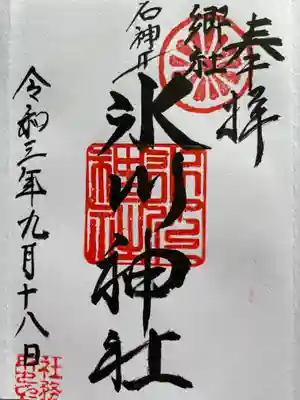 奉拝
郷社
石神井
氷川神社
氷川神社
令和三年九月十八日
社務